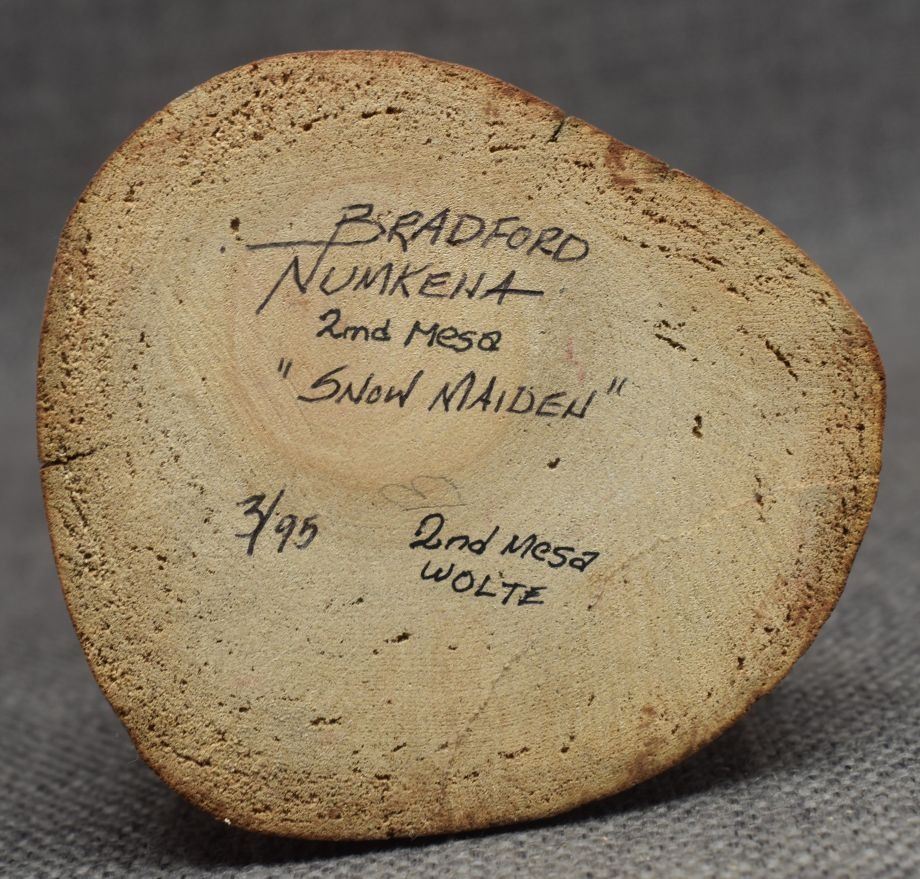 BRADFORD
NUMKENA
2nd Mesa
"SNOW MAIDEN"
3/95
2nd Mesa
WOLTE